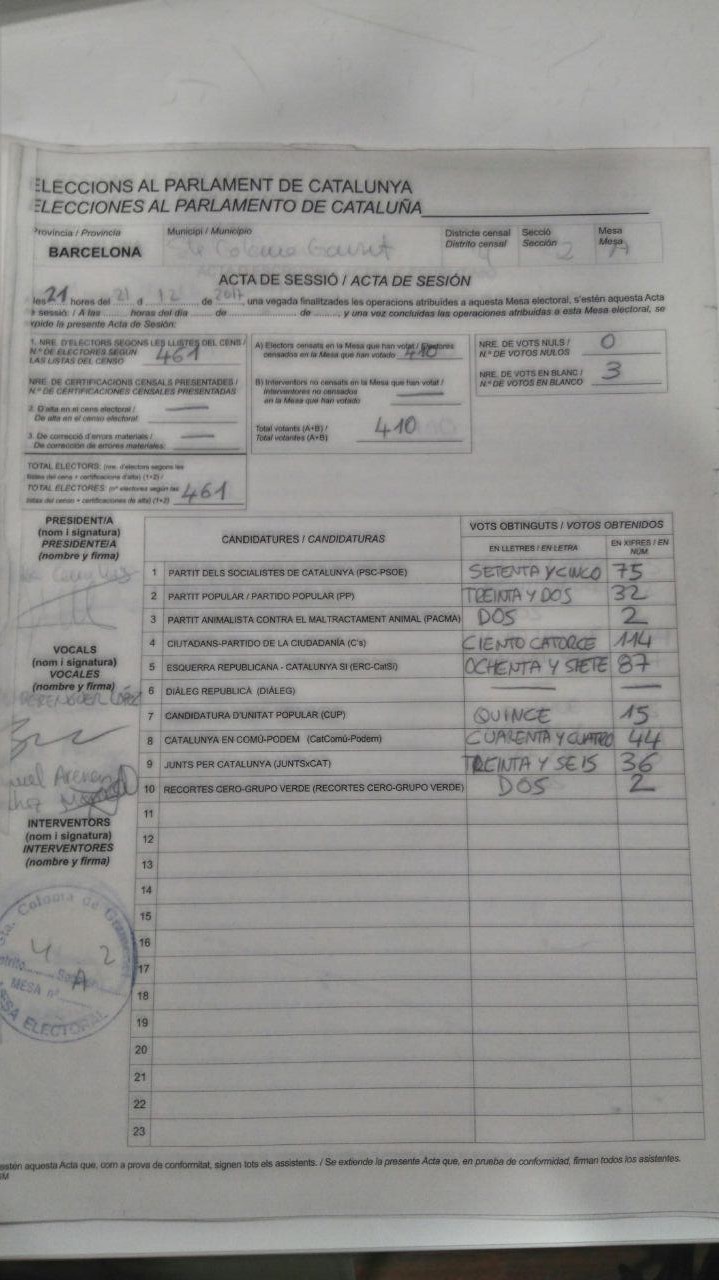 ELECCIONS AL PARLAMENT DE CATALUNYA
ELECCIONES AL PARLAMENTO DE CATALUÑA
Provincia / Provincia
BARCELONA
Municipi / Municipio
Sta Coloma Gramt
Districte censal
Distrito censal 4
Secció
Sección 2
Mesa
Mesa A
ACTA DE SESSIÓ / ACTA DE SESIÓN
les 21 hores del 21 d 12 de 2017, una vegada finalitzades les operacions atribuïdes a aquesta Mesa electoral, s'estén aquesta Acta
sessió: / A las ........ horas del día ........ de ........ de ........, y una vez concluidas las operaciones atribuidas a esta Mesa electoral, se
xpide la presente Acta de Sesión:
1. NRE. D'ELECTORS SEGONS LES LLISTES DEL CENS /
N.º DE ELECTORES SEGÚN
LAS LISTAS DEL CENSO 461
NRE. DE CERTIFICACIONS CENSALS PRESENTADES /
N.º DE CERTIFICACIONES CENSALES PRESENTADAS
2. D'alta en el cens electoral /
De alta en el censo electoral —
3. De correcció d'errors materials /
De corrección de errores materiales: —
TOTAL ELECTORS: (nre. d'electors segons les
llistes del cens + certificacions d'alta) (1+2) /
TOTAL ELECTORES: (nº electores según las
listas del censo + certificaciones de alta) (1+2) 461
A) Electors censats en la Mesa que han votat / Electores
censados en la Mesa que han votado 410
B) Interventors no censats en la Mesa que han votat /
Interventores no censados
en la Mesa que han votado —
Total votants (A+B) /
Total votantes (A+B) 410
NRE. DE VOTS NULS /
N.º DE VOTOS NULOS 0
NRE. DE VOTS EN BLANC /
N.º DE VOTOS EN BLANCO 3
PRESIDENT/A
(nom i signatura)
PRESIDENTE/A
(nombre y firma)
VOCALS
(nom i signatura)
VOCALES
(nombre y firma)
BERENGUER LÓPEZ
INTERVENTORS
(nom i signatura)
INTERVENTORES
(nombre y firma)
Sta. Coloma de Gramenet
4 2
MESA nº A
MESA ELECTORAL
CANDIDATURES / CANDIDATURAS
VOTS OBTINGUTS / VOTOS OBTENIDOS
EN LLETRES / EN LETRA
EN XIFRES / EN NÚM.
1 PARTIT DELS SOCIALISTES DE CATALUNYA (PSC-PSOE) SETENTA Y CINCO 75
2 PARTIT POPULAR / PARTIDO POPULAR (PP) TREINTA Y DOS 32
3 PARTIT ANIMALISTA CONTRA EL MALTRACTAMENT ANIMAL (PACMA) DOS 2
4 CIUTADANS-PARTIDO DE LA CIUDADANÍA (C's) CIENTO CATORCE 114
5 ESQUERRA REPUBLICANA - CATALUNYA SI (ERC-CatSí) OCHENTA Y SIETE 87
6 DIÀLEG REPUBLICÀ (DIÀLEG) — —
7 CANDIDATURA D'UNITAT POPULAR (CUP) QUINCE 15
8 CATALUNYA EN COMÚ-PODEM (CatComú-Podem) CUARENTA Y CUATRO 44
9 JUNTS PER CATALUNYA (JUNTSxCAT) TREINTA Y SEIS 36
10 RECORTES CERO-GRUPO VERDE (RECORTES CERO-GRUPO VERDE) DOS 2
11
12
13
14
15
16
17
18
19
20
21
22
23
estén aquesta Acta que, com a prova de conformitat, signen tots els assistents. / Se extiende la presente Acta que, en prueba de conformidad, firman todos los asistentes.